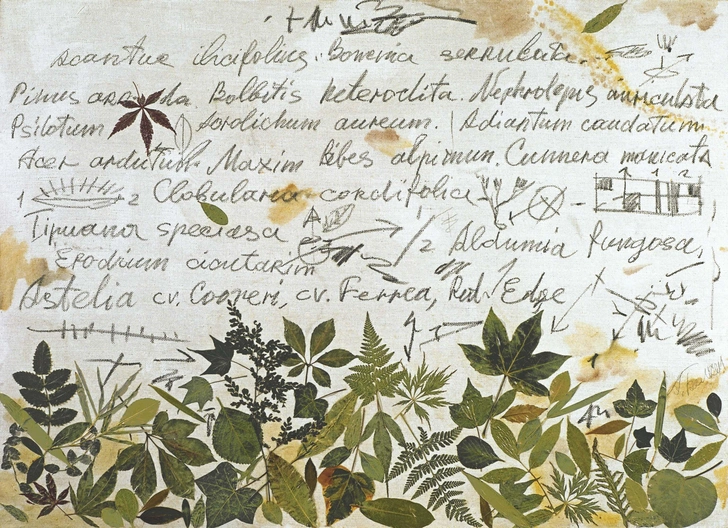 acantue ilicifolius. Bowenia serrulata.
Pinus Bolbitis heteroclita. Nephrolepis auriculata
Psilotum aureum. Adiantum caudatum
Acer Maxim Ribes alpinum. Cunnera manicata
1 2 Clobularia cordifolia 1 2
Tipuana speciasa 1 2 Aldumia fungosa,
Erodium cicutarim
Astelia cv. Cooperi, cv. Ferrea, Red Edge